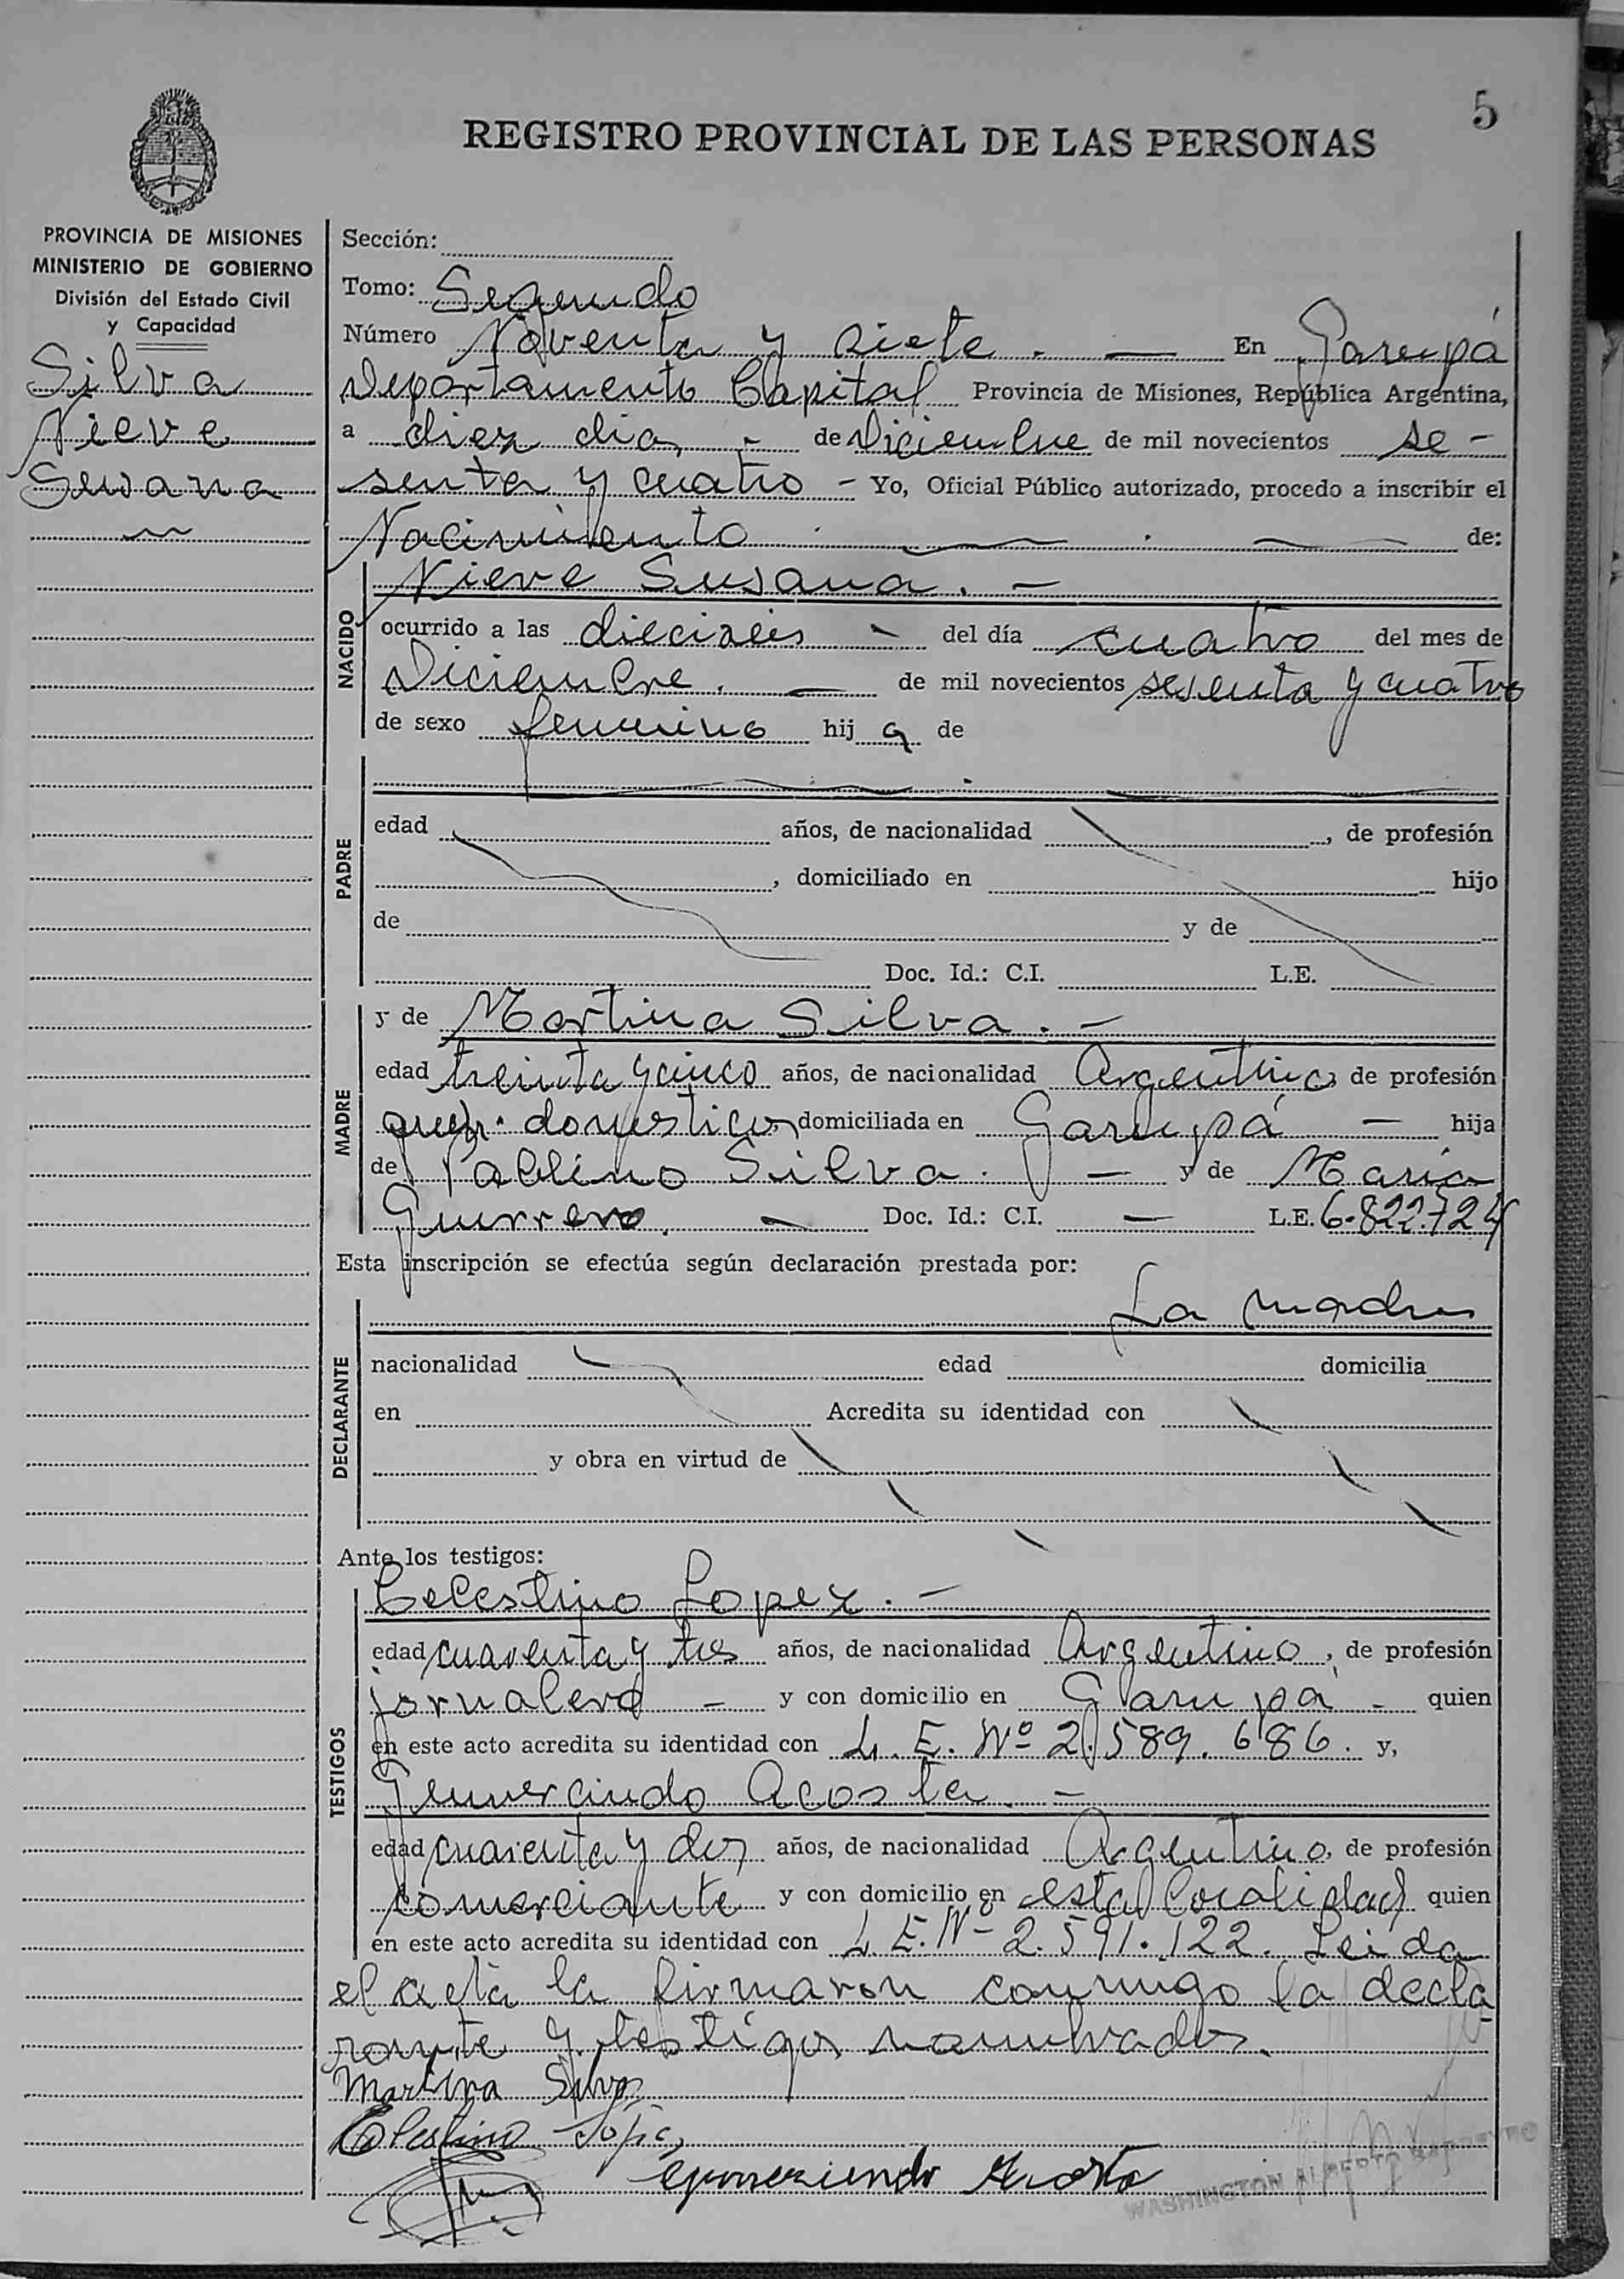 5
REGISTRO PROVINCIAL DE LAS PERSONAS
PROVINCIA DE MISIONES
MINISTERIO DE GOBIERNO
División del Estado Civil
y Capacidad
Silva
Nieve
Susana
Sección:
Tomo: Segundo
Número Noventa y siete . — En Garupá
Departamento Capital Provincia de Misiones, República Argentina,
a diez dia - de Diciembre de mil novecientos se-
senta y cuatro - Yo, Oficial Público autorizado, procedo a inscribir el
Nacimiento . — . — de:
NACIDO
Nieve Susana . —
ocurrido a las dieciseis - del día cuatro del mes de
Diciembre . — de mil novecientos sesenta y cuatro
de sexo femenino hij a de
PADRE
edad años, de nacionalidad , de profesión
, domiciliado en hijo
de y de
Doc. Id.: C.I. L.E.
MADRE
y de Martina Silva . —
edad treinta y cinco años, de nacionalidad Argentina de profesión
queh. domesticos domiciliada en Garupá — hija
de Silva . — y de Maria
Guerrero . — Doc. Id.: C.I. — L.E. 6.822.724
Esta inscripción se efectúa según declaración prestada por:
La madre
DECLARANTE
nacionalidad edad domicilia
en Acredita su identidad con
y obra en virtud de
Ante los testigos:
TESTIGOS
Celestino Lopez . —
edad cuarenta y tres años, de nacionalidad Argentino, de profesión
jornalero — y con domicilio en Garupa - quien
en este acto acredita su identidad con L. E. Nº 2.589.686. y,
Gumercindo Acosta . —
edad cuarenta y dos años, de nacionalidad Argentino, de profesión
comerciante y con domicilio en esta localidad quien
en este acto acredita su identidad con L. E. Nº 2.591.122. Leida
el acta la firmaron conmigo la decla
rante y testigos nombrados.
Martina Silva
Celestino Lopez
Gumersindo Acosta
WASHINGTON ALBERTO